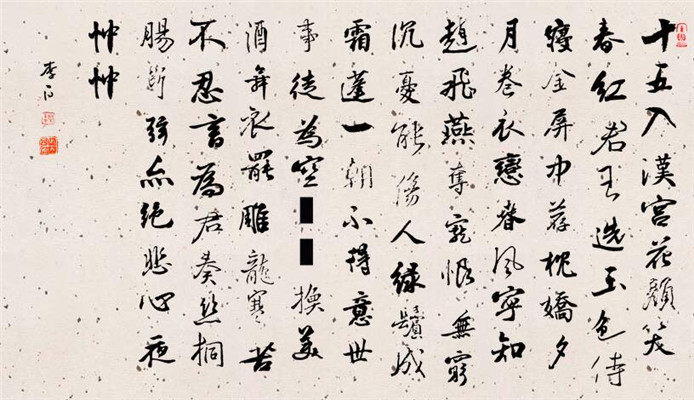 十五入漢宮花顏笑
春紅君王選玉色侍
寢金屏中薦枕嬌夕
月卷衣戀春風寧知
趙飛燕奪寵恨無窮
沉憂能傷人綠鬢成
霜蓬一朝不得意世
事徒為空換美
酒舞衣罷雕龍寒苦
不忍言為君奏絲桐
腸斷弦亦絕悲心夜
忡忡
李白